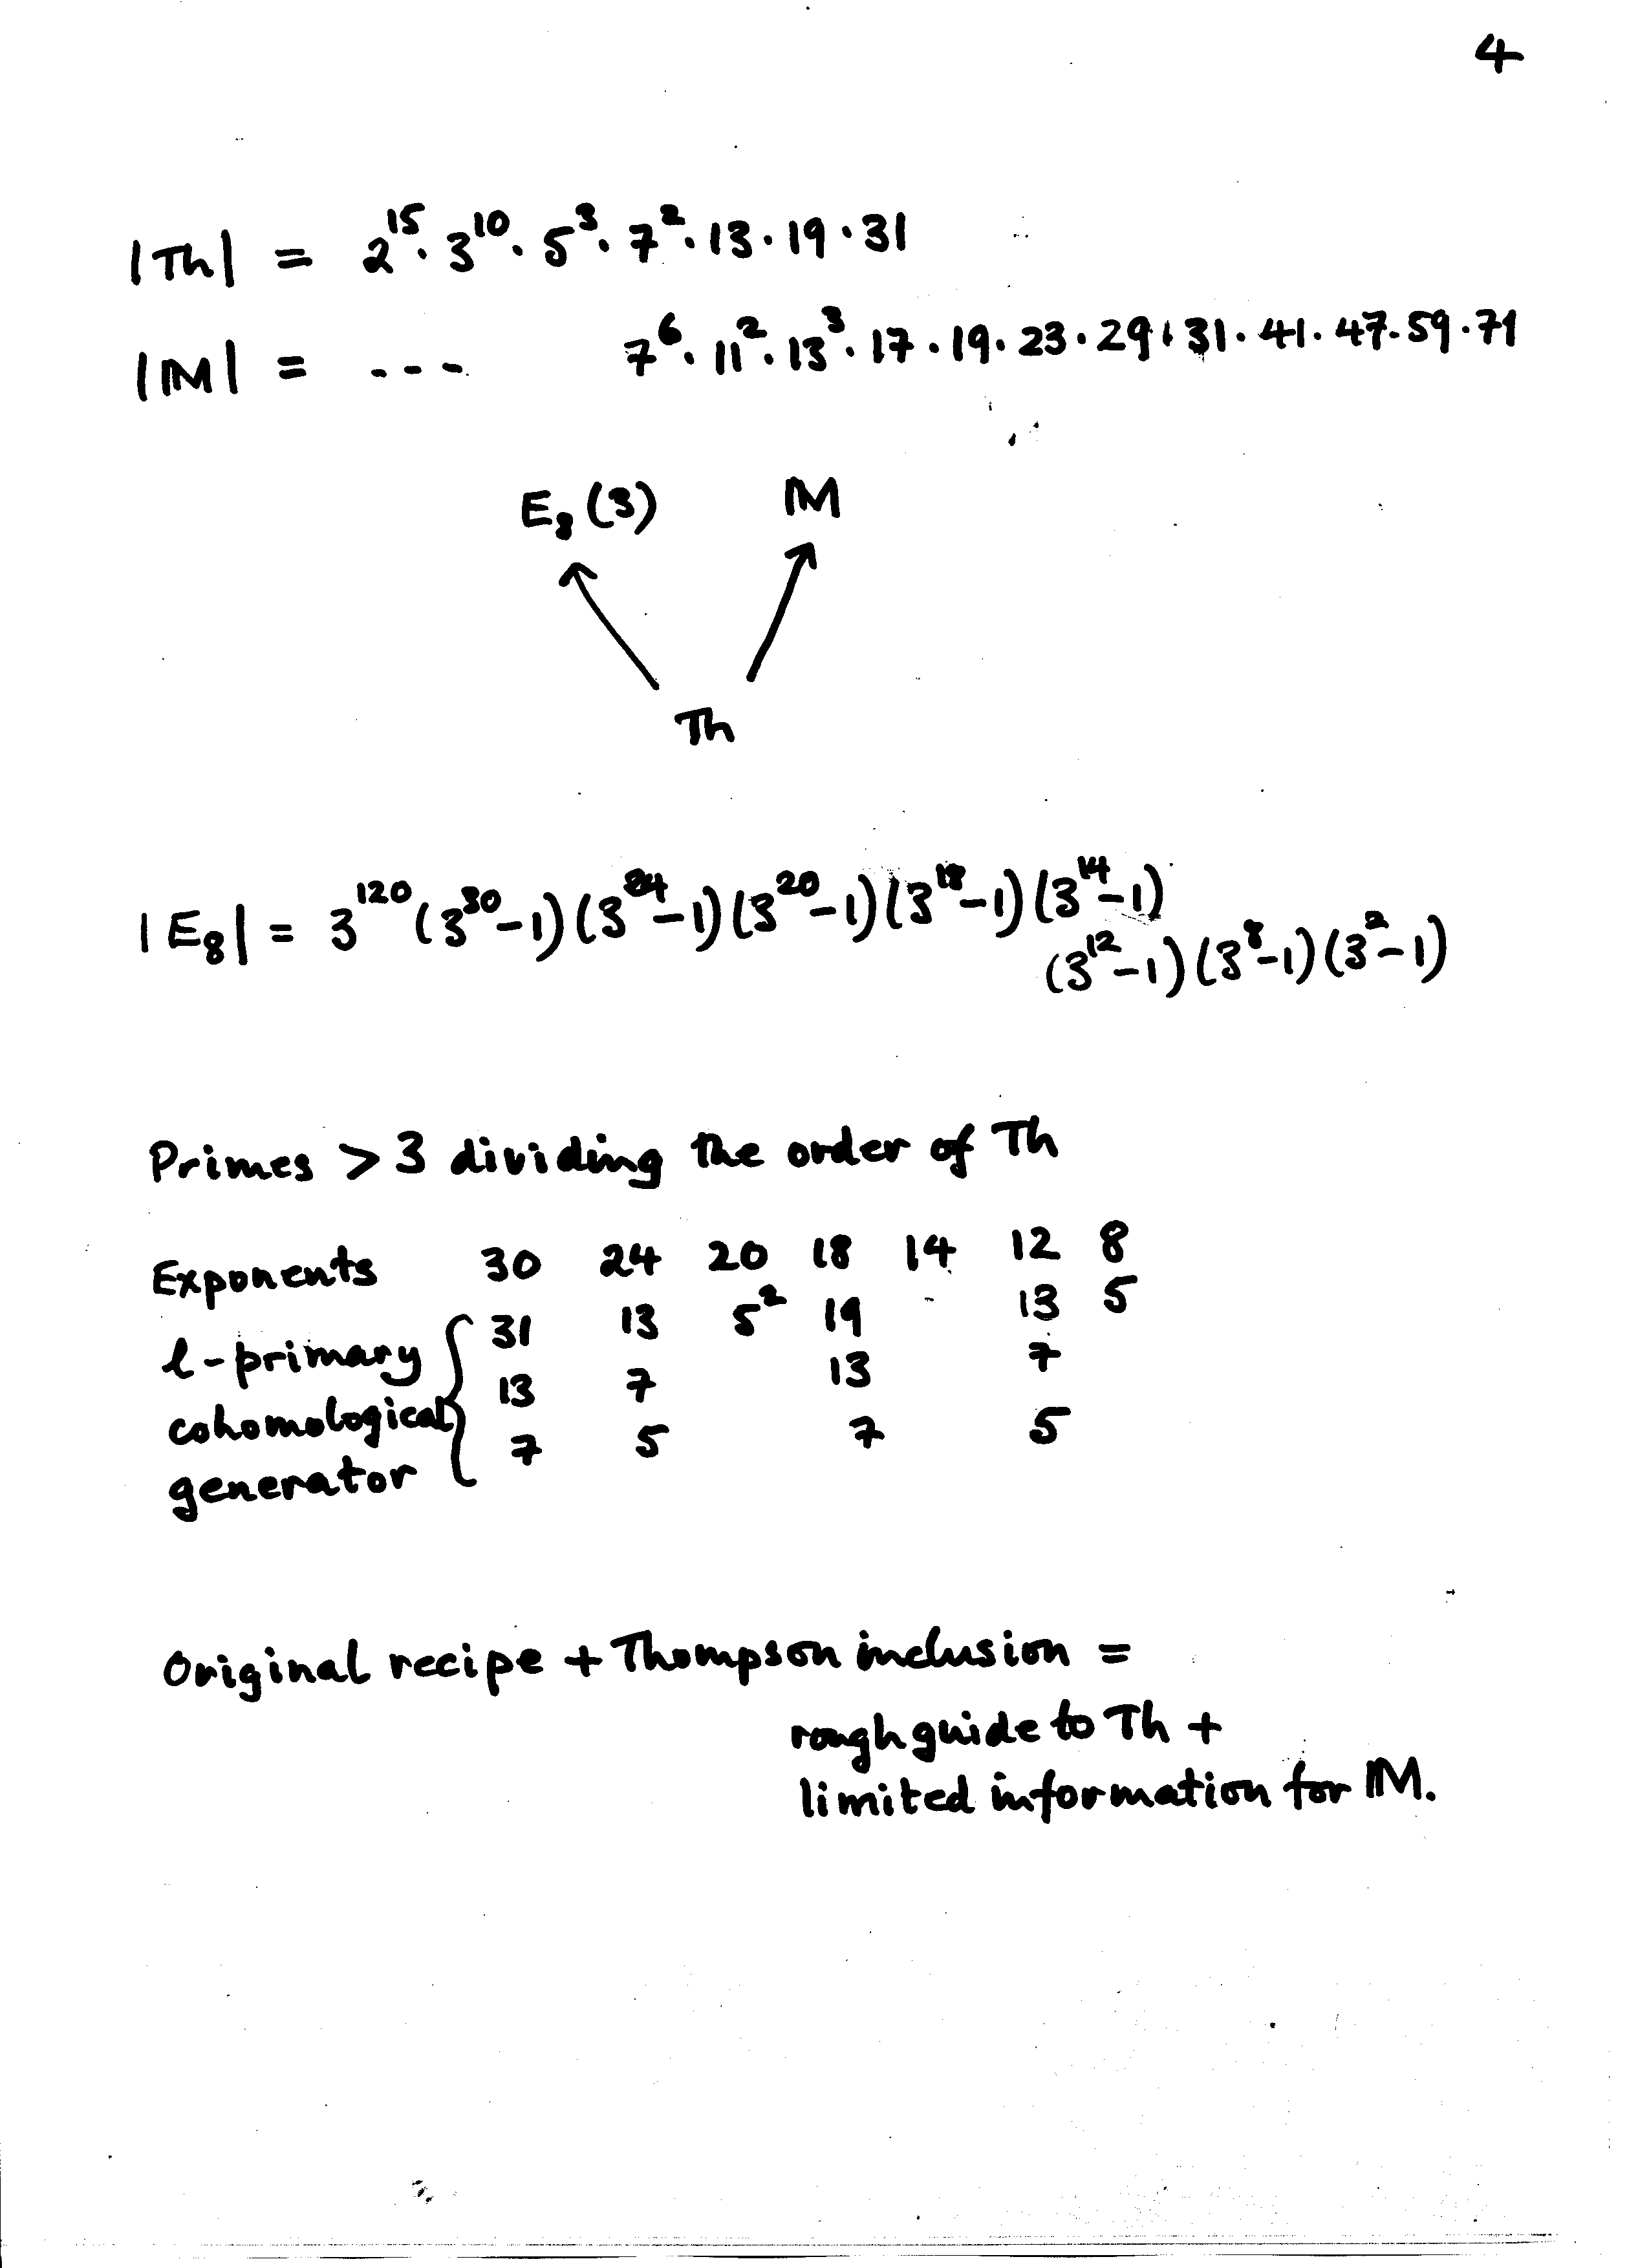 4
|Th| = 2^15 · 3^10 · 5^3 · 7^2 · 13 · 19 · 31
|M| = --- 7^6 · 11^2 · 13^3 · 17 · 19 · 23 · 29 · 31 · 41 · 47 · 59 · 71
E_8(3) M
Th
|E_8| = 3^120 (3^30 - 1)(3^24 - 1)(3^20 - 1)(3^18 - 1)(3^14 - 1)
(3^12 - 1)(3^8 - 1)(3^2 - 1)
Primes > 3 dividing the order of Th
Exponents 30 24 20 18 14 12 8
ℓ-primary 31 13 5^2 19 - 13 5
cohomological 13 7 13 7
generator 7 5 7 5
Original recipe + Thompson inclusion =
rough guide to Th +
limited information for M.